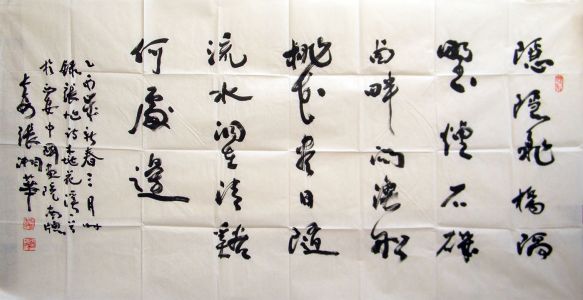 隱隱飛橋隔
野煙石磯
西畔問漁船
桃花盡日隨
流水洞在清谿
何處邊
乙酉歲新春三月
錄張旭詩桃花溪
於西安中國畫院南牕
張湘華